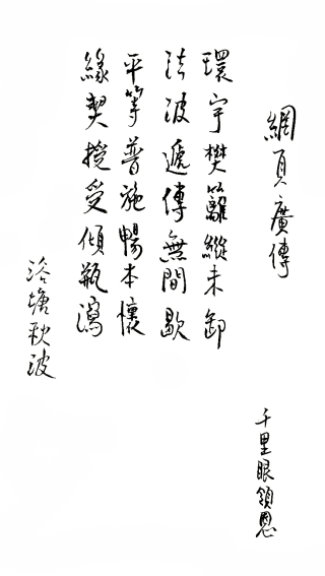 網頁廣傳
千里眼領恩
環宇樊籬縱未卸
法波遞傳無間歇
平等普施暢本懷
緣契授受傾瓶瀉
洛塘秋波